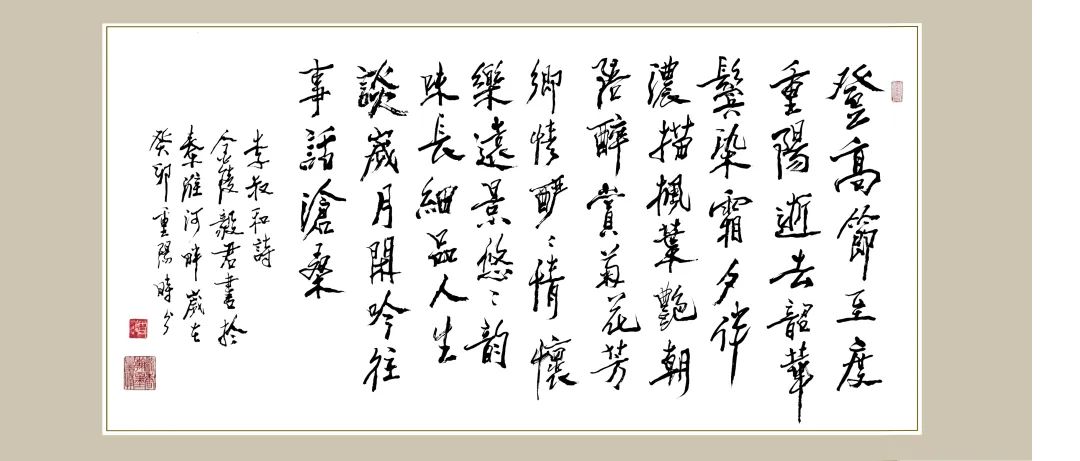 登高節至度
重陽逝去韶華
鬢染霜夕伴
濃描楓葉艷朝
陪醉賞菊花芳
鄉情酽〻情懷
樂遠景悠〻韵
味長細品人生
談歲月閑吟往
事話滄桑
李叔和詩
金陵毅君書於
秦淮河畔歲在
癸卯重陽時分